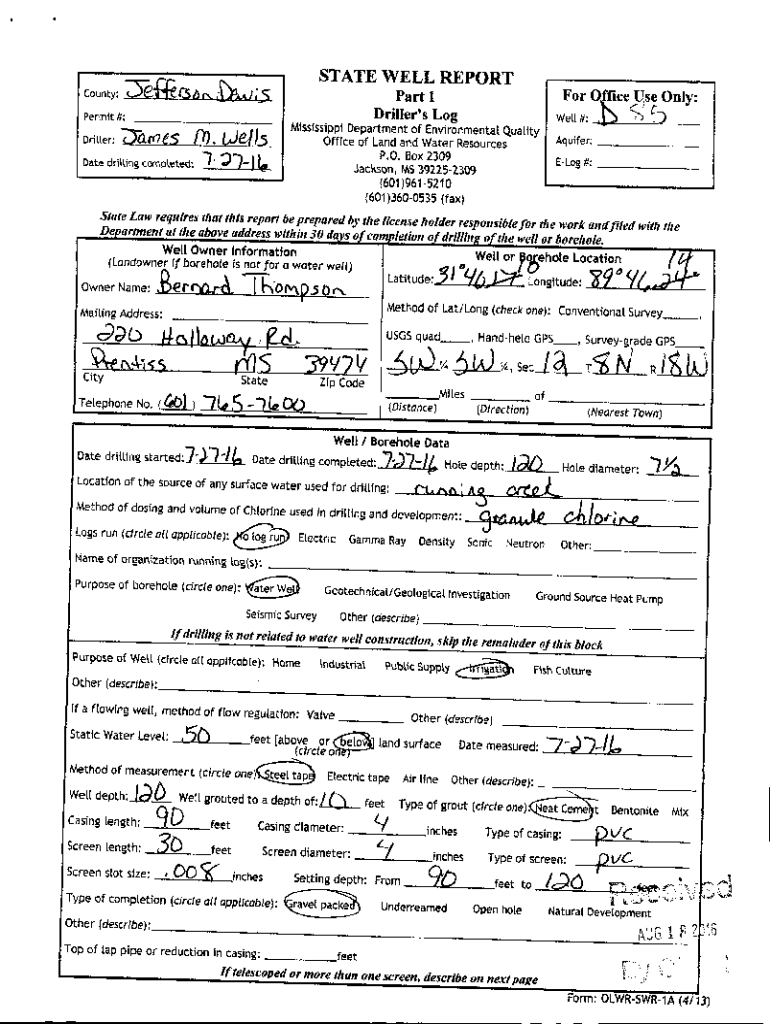 STATE WELL REPORT
Part 1
Driller's Log
Mississippi Department of Environmental Quality
Office of Land and Water Resources
P.O. Box 2309
Jackson, MS 39225-2309
(601)961-5210
(601)360-0535 (fax)
County: Jefferson Davis
Permit #:
Driller: James M. Wells
Date drilling completed: 7-27-16
For Office Use Only:
Well #: D
Aquifer:
E-Log #:
State Law requires that this report be prepared by the license holder responsible for the work and filed with the
Department at the above address within 30 days of completion of drilling of the well or borehole.
Well Owner Information
(Landowner if borehole is not for a water well)
Owner Name: Bernard Thompson
Mailing Address:
220 Holloway Rd.
Prentiss MS 39474
City State Zip Code
Telephone No. (601) 765-7600
Well or Borehole Location
Latitude: 31°46 Longitude: 89°46
Method of Lat/Long (check one): Conventional Survey ,
USGS quad , Hand-held GPS , Survey-grade GPS
SW ¼ SW ¼, Sec 12 T 8N R 18W
Miles of
(Distance) (Direction) (Nearest Town)
Well / Borehole Data
Date drilling started: 7-27-16 Date drilling completed: 7-27-16 Hole depth: 120 Hole diameter: 7½
Location of the source of any surface water used for drilling: running
Method of dosing and volume of Chlorine used in drilling and development: granule chlorine
Logs run (circle all applicable): No log run Electric Gamma Ray Density Sonic Neutron Other:
Name of organization running log(s):
Purpose of borehole (circle one): Water Well Geotechnical/Geological Investigation Ground Source Heat Pump
Seismic Survey Other (describe)
If drilling is not related to water well construction, skip the remainder of this block
Purpose of Well (circle all applicable): Home Industrial Public Supply Irrigation Fish Culture
Other (describe):
If a flowing well, method of flow regulation: Valve Other (describe)
Static Water Level: 50 feet [above or below] land surface Date measured: 7-27-16
(circle one)
Method of measurement (circle one) Steel tape Electric tape Air line Other (describe):
Well depth: 120 Well grouted to a depth of: 10 feet Type of grout (circle one): Neat Cement Bentonite Mix
Casing length: 90 feet Casing diameter: 4 inches Type of casing: PVC
Screen length: 30 feet Screen diameter: 4 inches Type of screen: PVC
Screen slot size: .008 inches Setting depth: From 90 feet to 120 feet
Received
Type of completion (circle all applicable): Gravel packed Underreamed Open hole Natural Development
AUG 18 2016
Other (describe):
Top of lap pipe or reduction in casing: feet
If telescoped or more than one screen, describe on next page
Form: OLWR-SWR-1A (4/13)